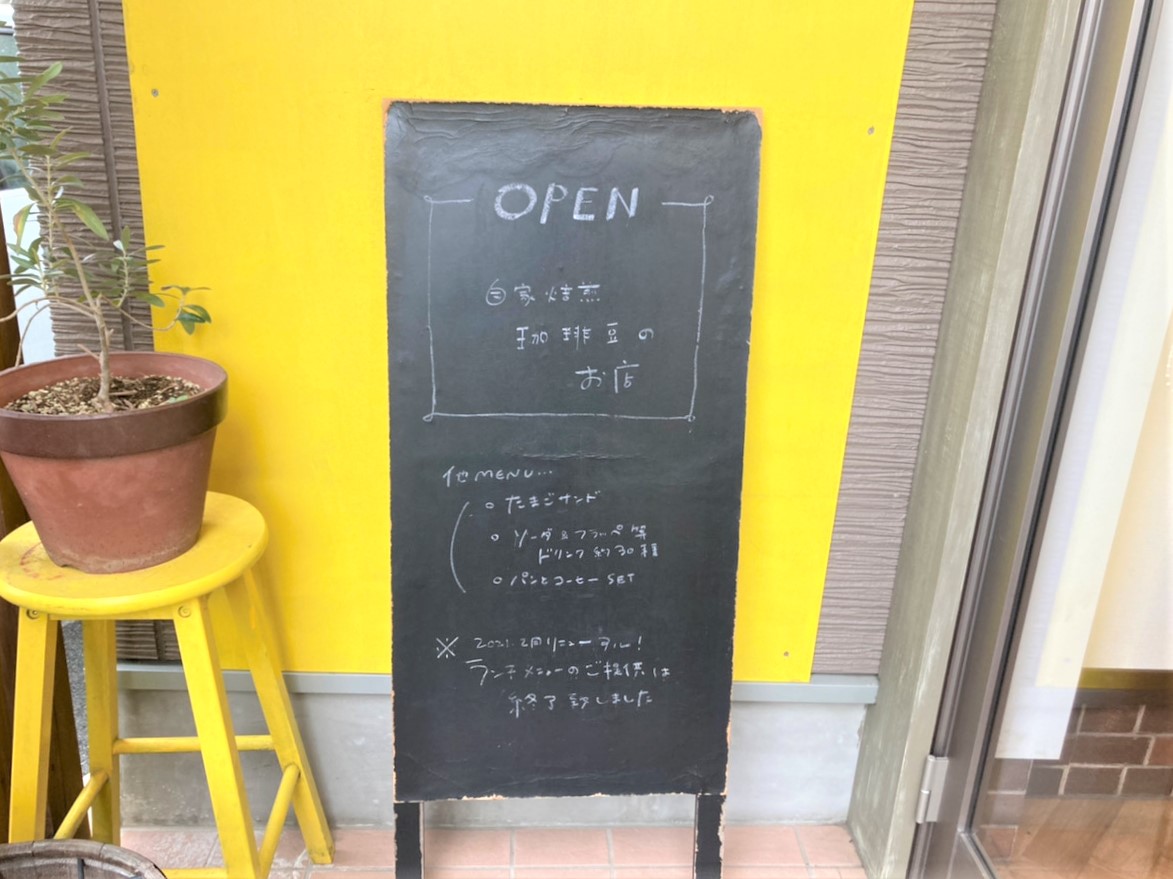 OPEN
自家焙煎
珈琲豆の
お店
他MENU...
○ たまごサンド
○ ソーダ&フラッペ等
ドリンク約30種
○ パンとコーヒーSET
※ 2021.2月リニューアル!
ランチメニューのご提供は
終了致しました